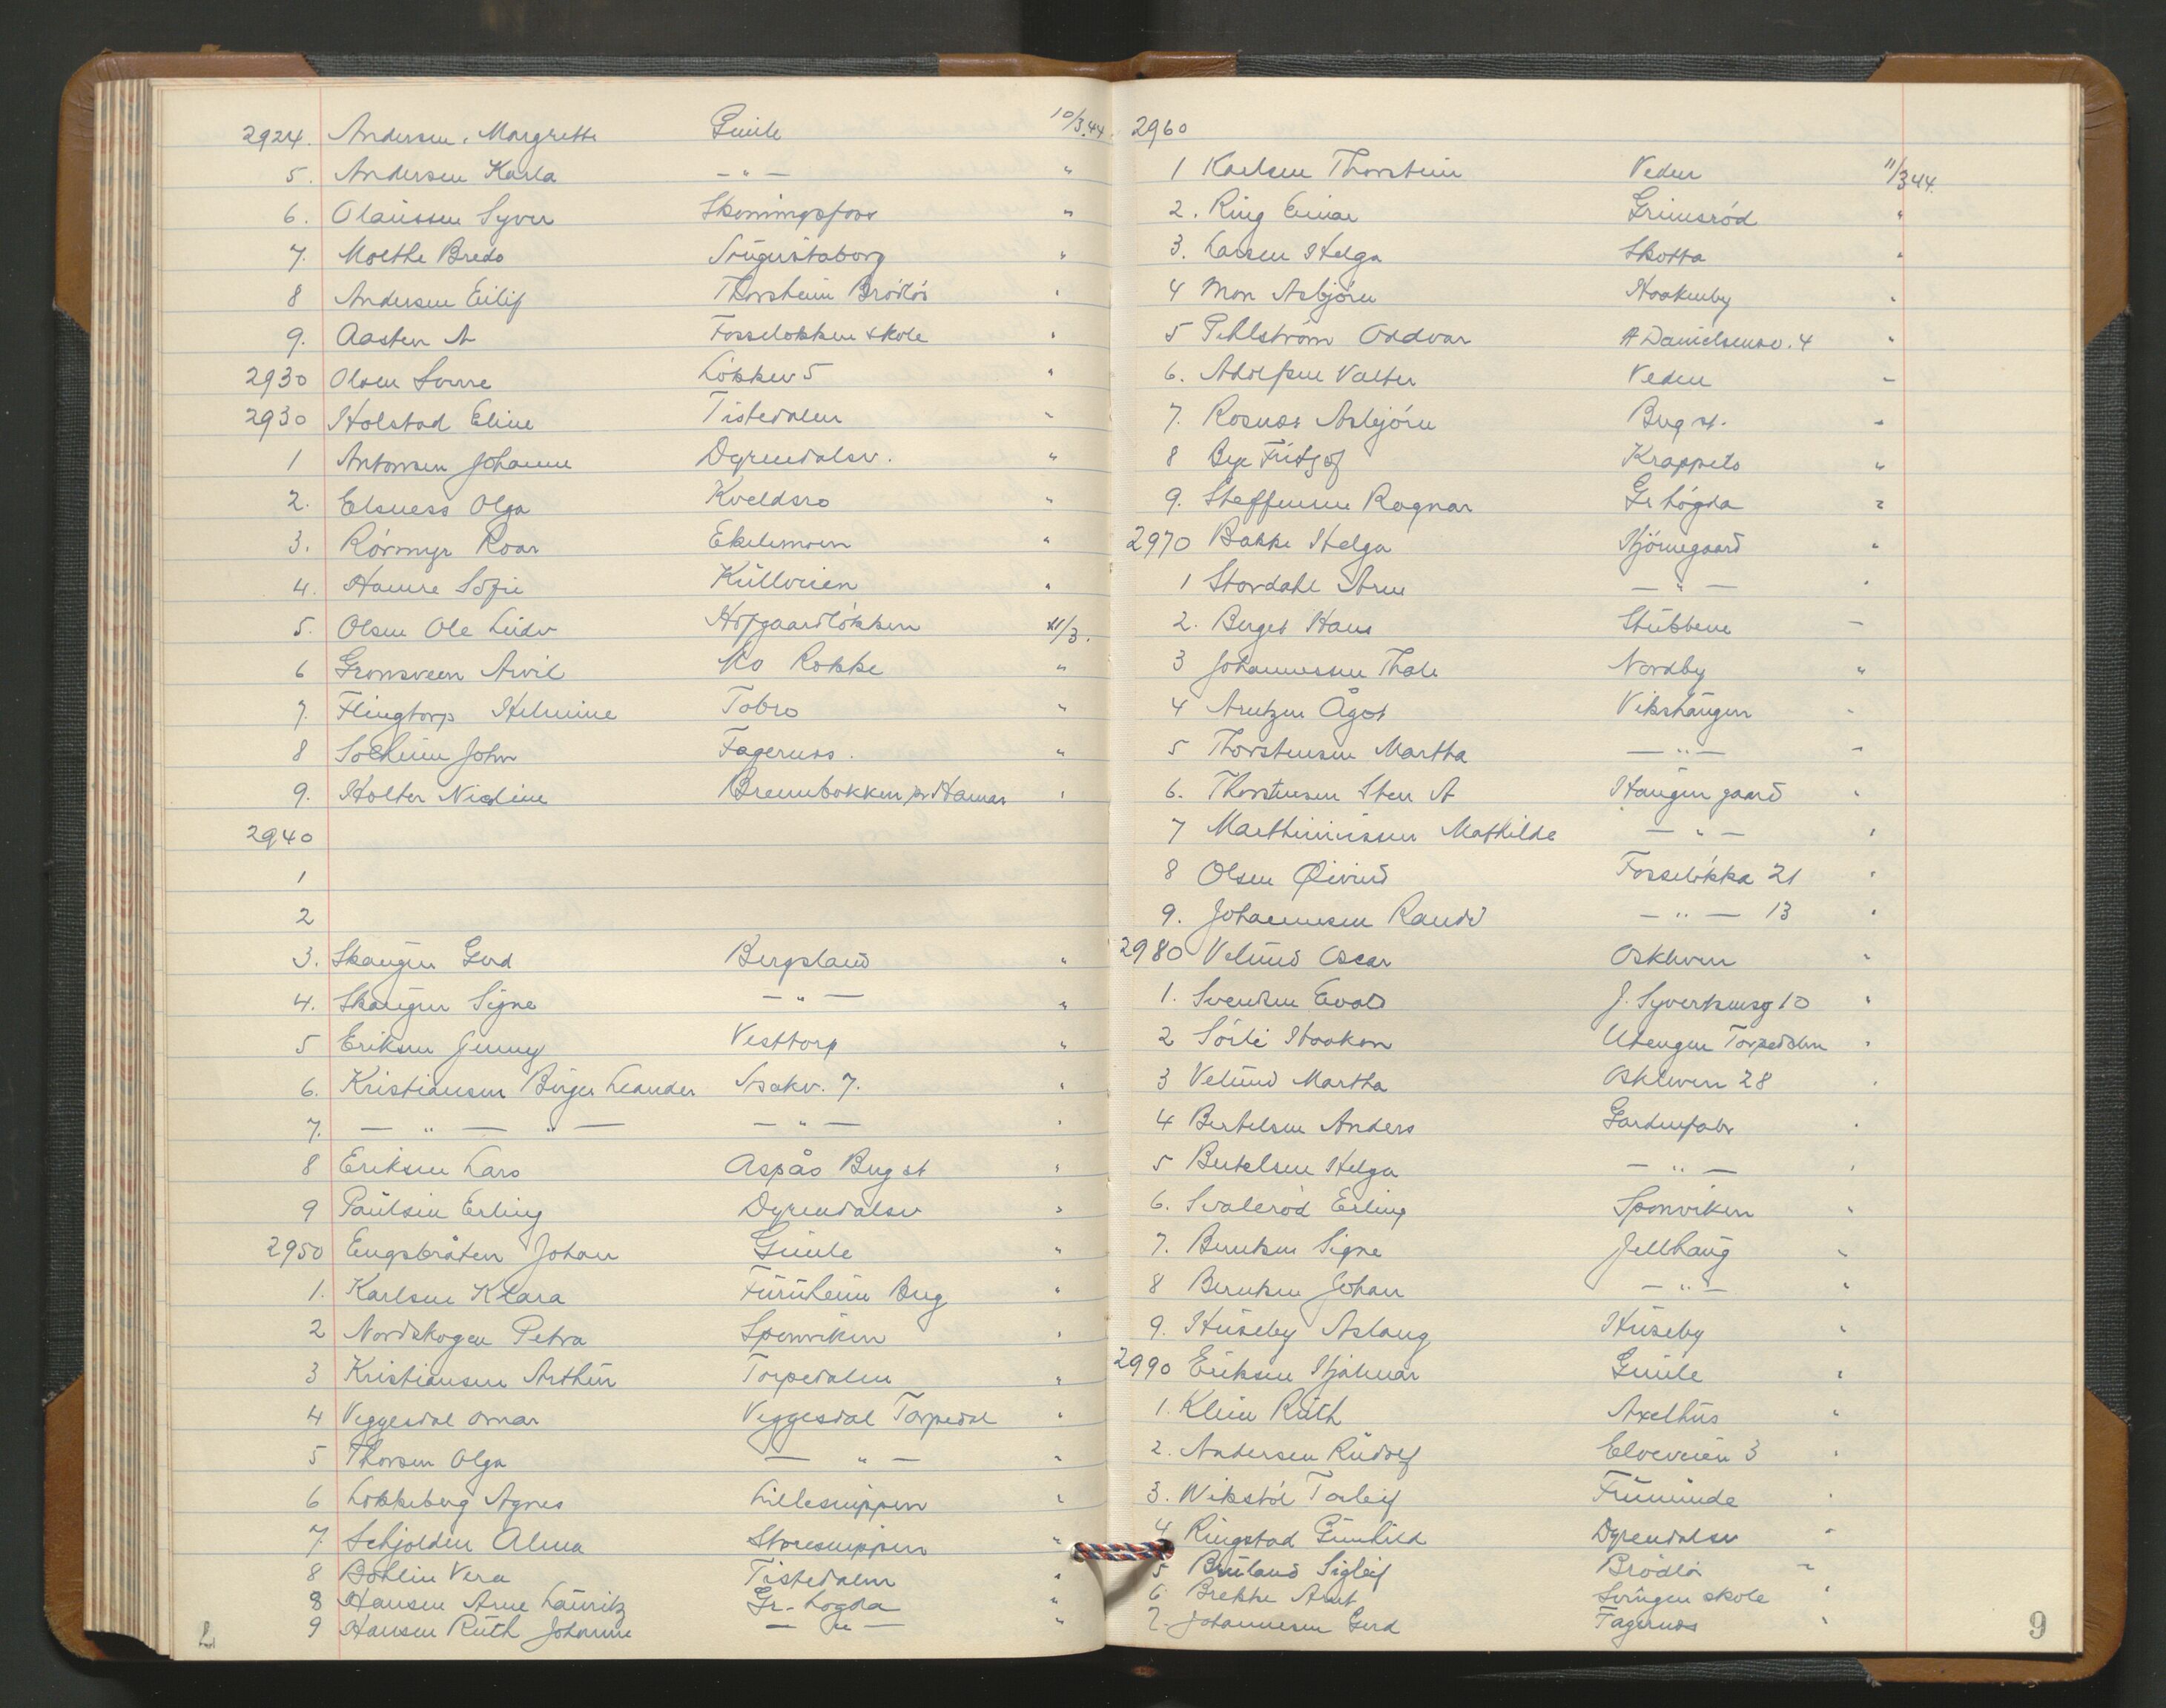 2924. Andersen, Margrethe Gimle 10/3.44
5. Andersen Karla — " — "
6. Olaussen Syver Skonningsfoss "
7. Molthe Bredo Augustaborg "
8 Andersen Eilif Thorsheim Brödlös "
9. Aasten A Fosseløkken skole "
2930 Olsen Sverre Løkkev 5 "
2930 Holstad Eline Tistedalen "
1 Antonsen Johanne Dyrendalsv. "
2. Elsness Olga Kveldsro "
3. Rörmyr Roar Ekelemoen "
4. Hamre Sofie "
5. Olsen Ole Ludv Hofgaardlökken 11/3.
6 Gronsveen Arvid Mo Rokke "
7. Flingtorp Helmine Tobro "
8 Solheim John Fagernes. "
9. Holter Nicoline Brennbakken pr Hamar "
2940
1
2
3. Skaugen Gerd Bergsland "
4. Skaugen Signe — " — "
5 Eriksen Jenny Vesttorp "
6. Kristiansen Birger Leander Isakv. 7. "
7. — " — " — — " — "
8 Eriksen Lars Aspås Berg st "
9 Paulsen Erling Dyrendalsv "
2950 Engsbråten Johan Gimle "
1. Karlsen Klara Furuheim Berg "
2 Nordskogen Petra Sponviken "
3 Kristiansen Arthur Torpedalen "
4 Veggesdal Ornar Veggesdal Torpedal "
5 Thorsen Olga — " — "
6 Løkkeberg Agnes Lillesnippen "
7. Schjolden Alma Storesnippen "
8 Bohlin Vera Tistedalen "
8 Hansen Arne Lauritz Gr. Løgda "
9 Hansen Ruth Johanne — " — "
2960
1 Karlsen Thorstein Veden 11/3 44.
2. Ring Einar Grimsröd "
3. Larsen Helga Skotta "
4 Mon Asbjörn Haakenby "
5 Pehlström Oddvar A Danielsensv. 4 "
6. Adolfsen Valter Veden "
7. Rosnæs Asbjörn Berg st. "
8 Bye Fritjof Krappeto "
9. Steffensen Ragnar Gr Lögda "
2970 Bakke Helga Hjörnegaard "
1 Stordahl Arne — " — "
2. Berget Hans Stubbene "
3 Johannessen Thale Nordby "
4 Arntzen Ågot Vikshaugen "
5 Thorstensen Martha — " — "
6. Thorstensen Sten A Haugen gaard "
7 Marthiniussen Mathilde — " — "
8 Olsen Øivind Fosseløkka 21 "
9. Johannesen Randi — " — 13 "
2980 Velund Oscar Oskleven "
1. Svendsen Evald J. Syvertsensg 10 "
2 Sörli Haakon Utengen Torpedalen "
3 Velund Martha Oskleven 28 "
4 Bertelsen Anders Gardinfabr "
5 Bertelsen Helga — " — "
6. Svaleröd Erling Sponviken "
7. Berntsen Signe Jellhaug "
8 Berntsen Johan — " — "
9. Huseby Aslaug Huseby "
2990 Eriksen Hjalmar Gimle "
1. Klein Ruth Axelhus "
2. Andersen Rudolf Elveveien 3 "
3. Wikstöl Torleif "
4 Ringstad Gunhild Dyrendalsv "
5 Bruland Sigleif Brödlös "
6 Brekke Arnt Svingen skole "
7. Johannesen Gerd Fagernes "
9